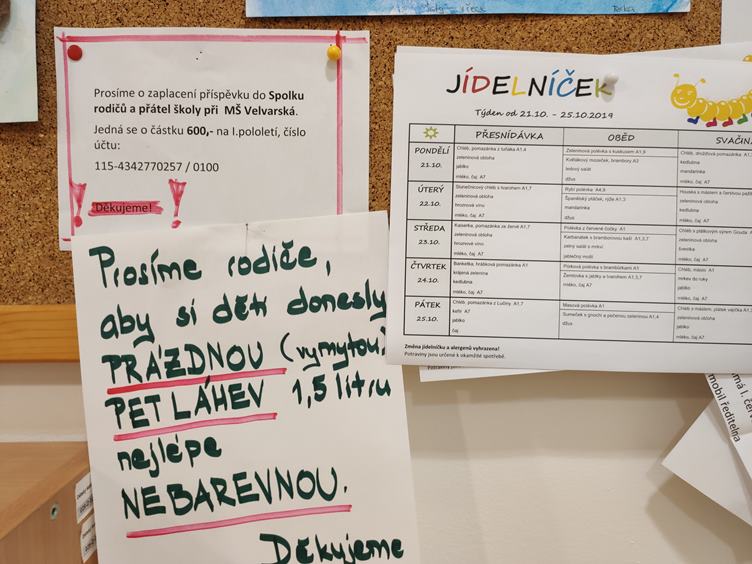 Prosíme o zaplacení příspěvku do Spolku
rodičů a přátel školy při MŠ Velvarská.
Jedná se o částku 600,- na I.pololetí, číslo
účtu:
115-4342770257 / 0100
Děkujeme!
Prosíme rodiče,
aby si děti donesly
PRÁZDNOU (vymytou)
PET LÁHEV 1,5 litru
nejlépe
NEBAREVNOU.
Děkujeme
JÍDELNÍČEK
Týden od 21.10. - 25.10.2019
PŘESNÍDÁVKA OBĚD SVAČIN
PONDĚLÍ
21.10.
Chléb, pomazánka z tuňáka A1,4
zeleninová obloha
jablko
mléko, čaj A7
Zeleninová polévka s kuskusem A1,9
Květákový mozeček, brambory A3
ledový salát
džus
Chléb, drožďová pomazánka
kedlubna
mandarinka
mléko, čaj A7
ÚTERÝ
22.10.
Slunečnicový chléb s tvarohem A1,7
zeleninová obloha
hroznové víno
mléko, čaj A7
Rybí polévka A4,9
Španělský ptáček, rýže A1,3
mandarinka
džus
Houska s máslem a čerstvou
zeleninová obloha
jablko
mléko, čaj A7
STŘEDA
23.10.
Kaiserka, pomazánka ze žervé A1,7
zeleninová obloha
hroznové víno
mléko, čaj A7
Polévka z červené čočky A1
Karbanátek s bramborovou kaší A1,3,7
zelný salát s mrkví
jablečný mošt
Chléb s plátkovým sýrem Gouda
zeleninová obloha
švestka
mléko, čaj A7
ČTVRTEK
24.10.
Banketka, hrášková pomazánka A1
krájená zelenina
kedlubna
mléko, čaj A7
Pórková polévka s bramborami A1
Žemlovka s jablky a tvarohem A1,3,7
mléko, čaj A7
Chléb, máslo A1
mrkev do ruky
jablko
mléko, čaj A7
PÁTEK
25.10.
Chléb, pomazánka z Lučiny A1,7
kefír A7
jablko
čaj
Masová polévka A1
Sumeček s gnochi a pečenou zeleninou A1,4
džus
Chléb s máslem, plátek vajíčka
zeleninová obloha
jablko
mléko, čaj A7
Změna jídelníčku a alergenů vyhrazena!
Potraviny jsou určené k okamžité spotřebě.
mobil ředitelna